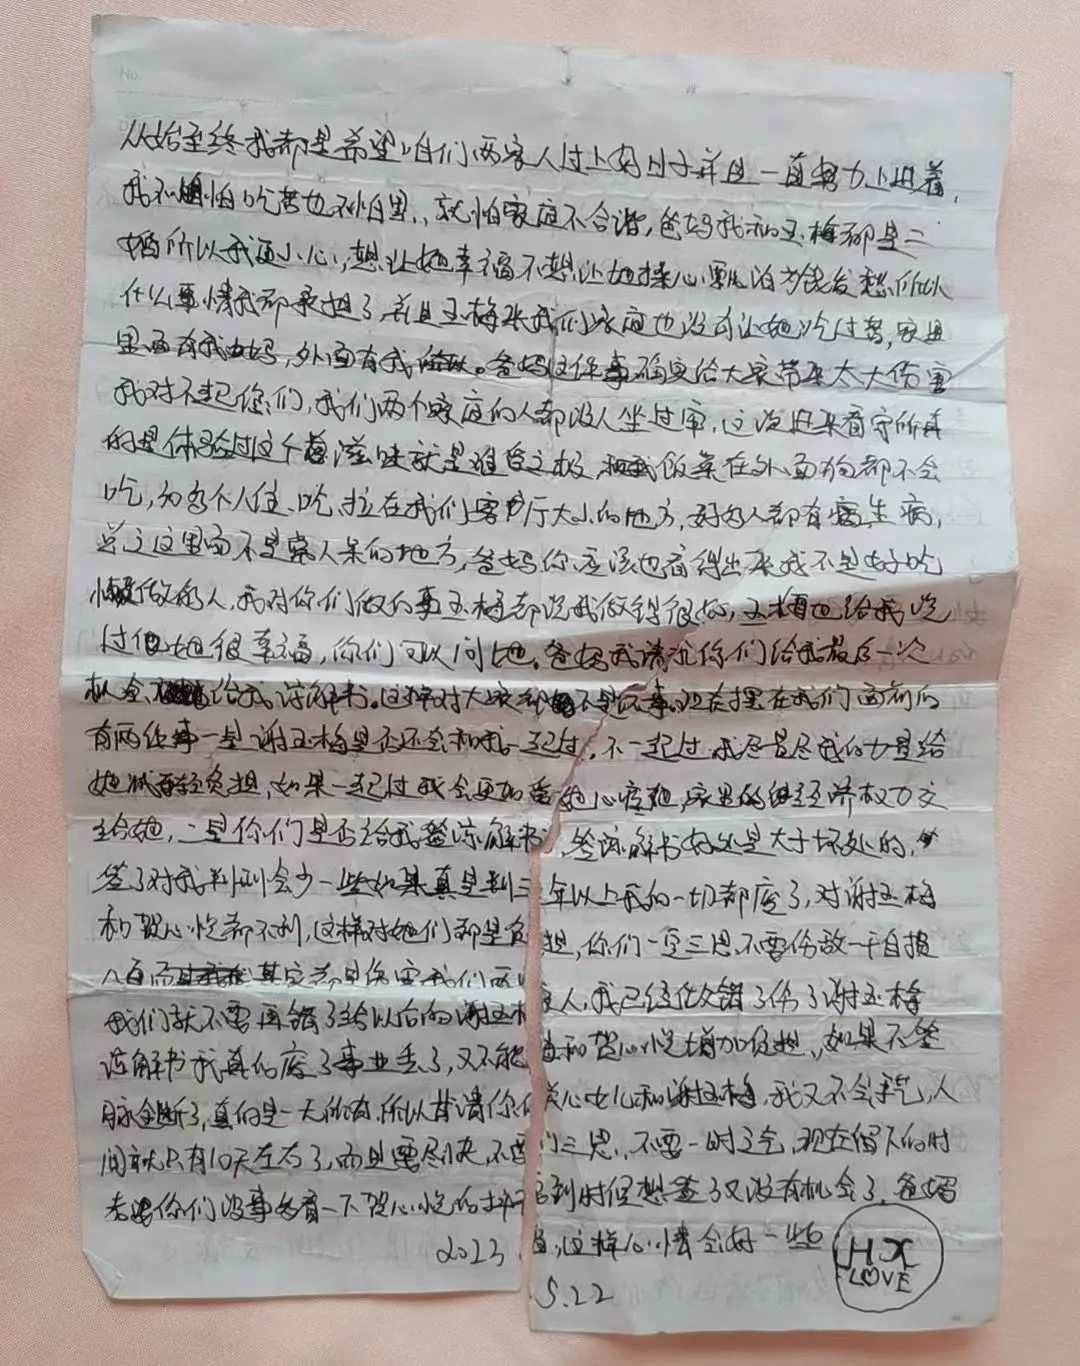 从始至终我都是希望咱们两家人过上好日子并且一直努力上进着,
我不怕吃苦也不怕累,就怕家庭不合谐,爸妈我和玉梅都是二
婚所以我更小心,想让她幸福不想让她操心 为钱发愁所以
什么事情我都承担了,并且玉梅来我们家庭也没有让她吃过苦,家里
里面有我妈,外面有我 。爸妈这件事确实给大家带来太大伤害
我对不起你们,我们两个家庭的人都没人坐过牢,这次进来看守所真
的是体验过这个 滋味就是难受之极, 饭菜在外面狗都不会
吃,20多个人住、吃、拉在我们客厅大小的地方,好多人都有 病,
总之这里面不是常人呆的地方,爸妈你应该也看得出来我不是好吃
懒做的人,我对你们做的事玉梅都说我做得很好,玉梅也给我说
过 她很幸福,你们可以问她。爸妈我请求你们给我最后一次
机会, 给我谅解书。这样对大家都不是坏事。现在摆在我们面前的
有两件事一是谢玉梅是否还会和我一起过,不一起过我尽量尽我的力量给
她减轻负担,如果一起过我会更加 她心疼她,家里的经济权力交
给她,二是你们是否给我签谅解书,签谅解书好处是大于坏处的,
签了对我判刑会少一些如果真是判三年以上我的一切都废了,对谢玉梅
和贺心悦都不利,这样对她们都是负担,你们一定三思,不要伤敌一千自损
八百而且 其实都是伤害我们两家人,我已经做错了伤了谢玉梅
我们就不要再错了给以后的谢玉梅和贺心悦增加负担,如果不签
谅解书我真的废了事业丢了,又不能关心女儿和谢玉梅,我又不会手艺,人
脉全断了,真的是一无所有,所以肯请你们三思,不要一时之气,现在留下的时
间就只有10天左右了,而且要尽快,不要 到时候想签了又没有机会了。爸妈
你们没事多看一下贺心悦的 ,这样心情会好一些
2023.5.22
HX
LOVE